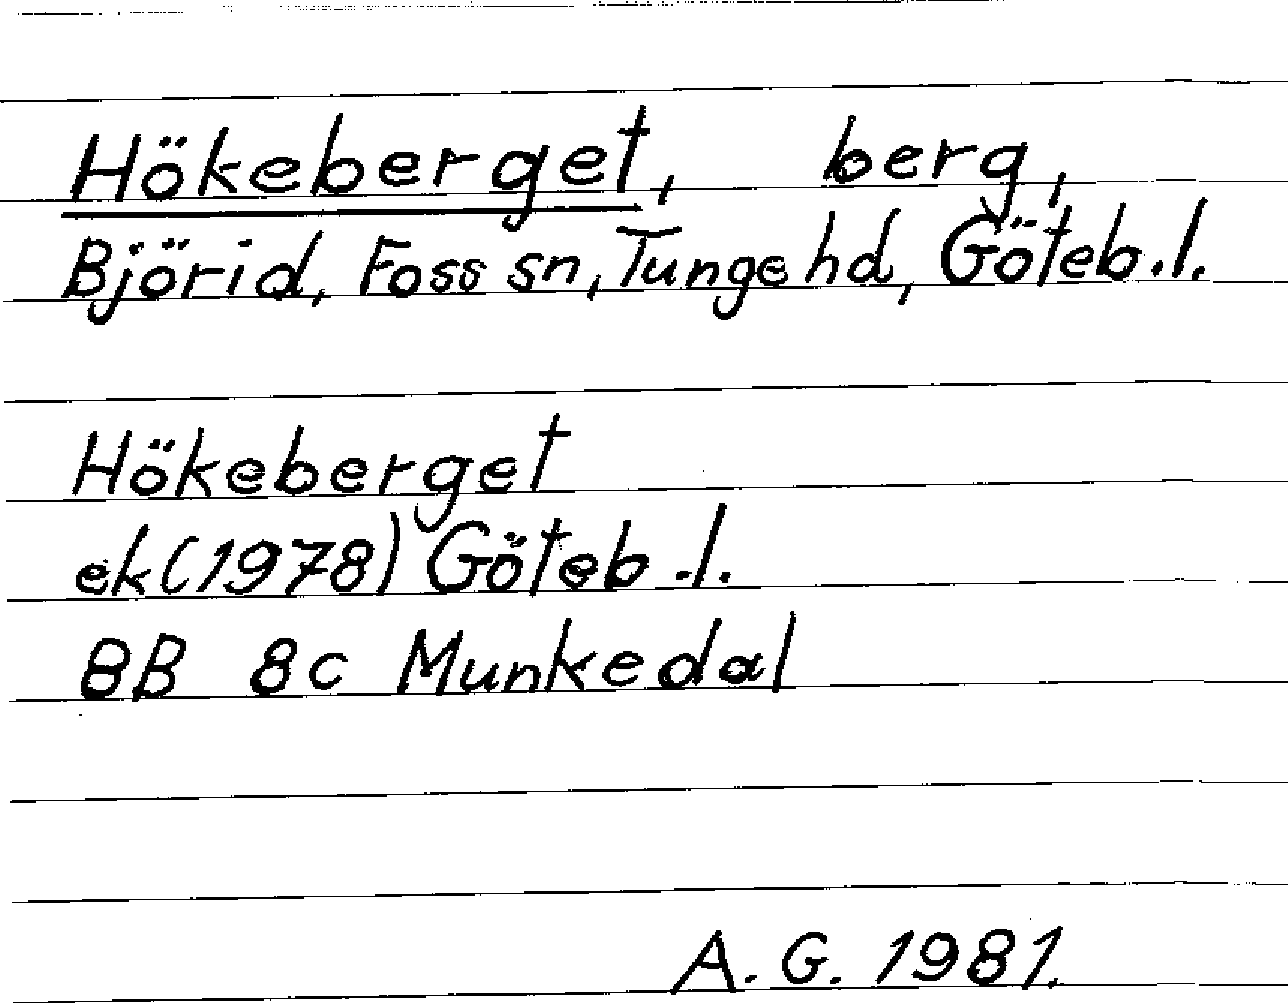 Hökeberget, berg,
Björid, Foss sn, Tunge hd, Göteb.l.
Hökeberget
ek (1978) Göteb.l.
8B 8c Munkedal
A. G. 1981.